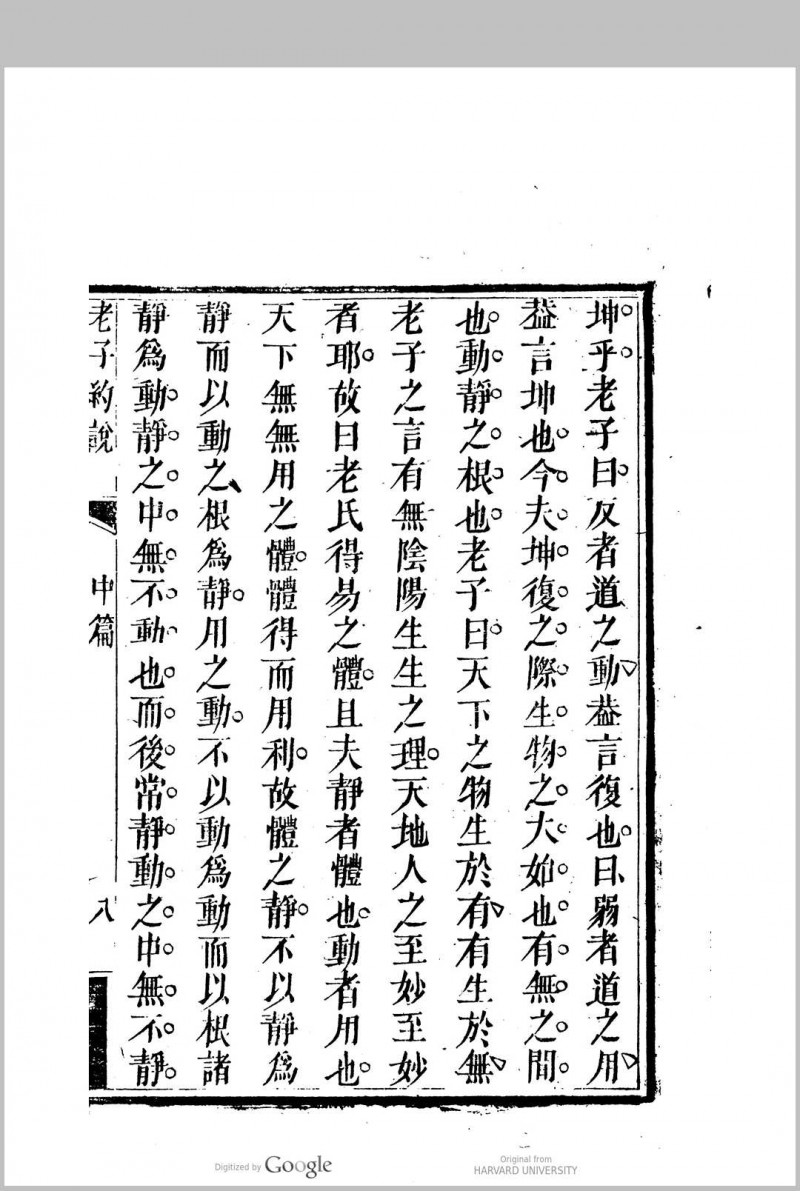 坤乎老子曰反者道之動葢言復也曰弱者道之用
葢言坤也今夫坤復之際生物之大始也有無之間
也動靜之根也老子曰天下之物生於有有生於無
老子之言有無陰陽生生之理天地人之至妙至妙
者耶故曰老氏得易之體且夫靜者體也動者用也
天下無無用之體體得而用利故體之靜不以靜爲
靜而以動之根爲靜用之動不以動爲動而以根諸
靜爲動靜之中無不動也而後常靜動之中無不靜
老子約說 中篇 八
Digitized by Google
Original from
HARVARD UNIVERSITY